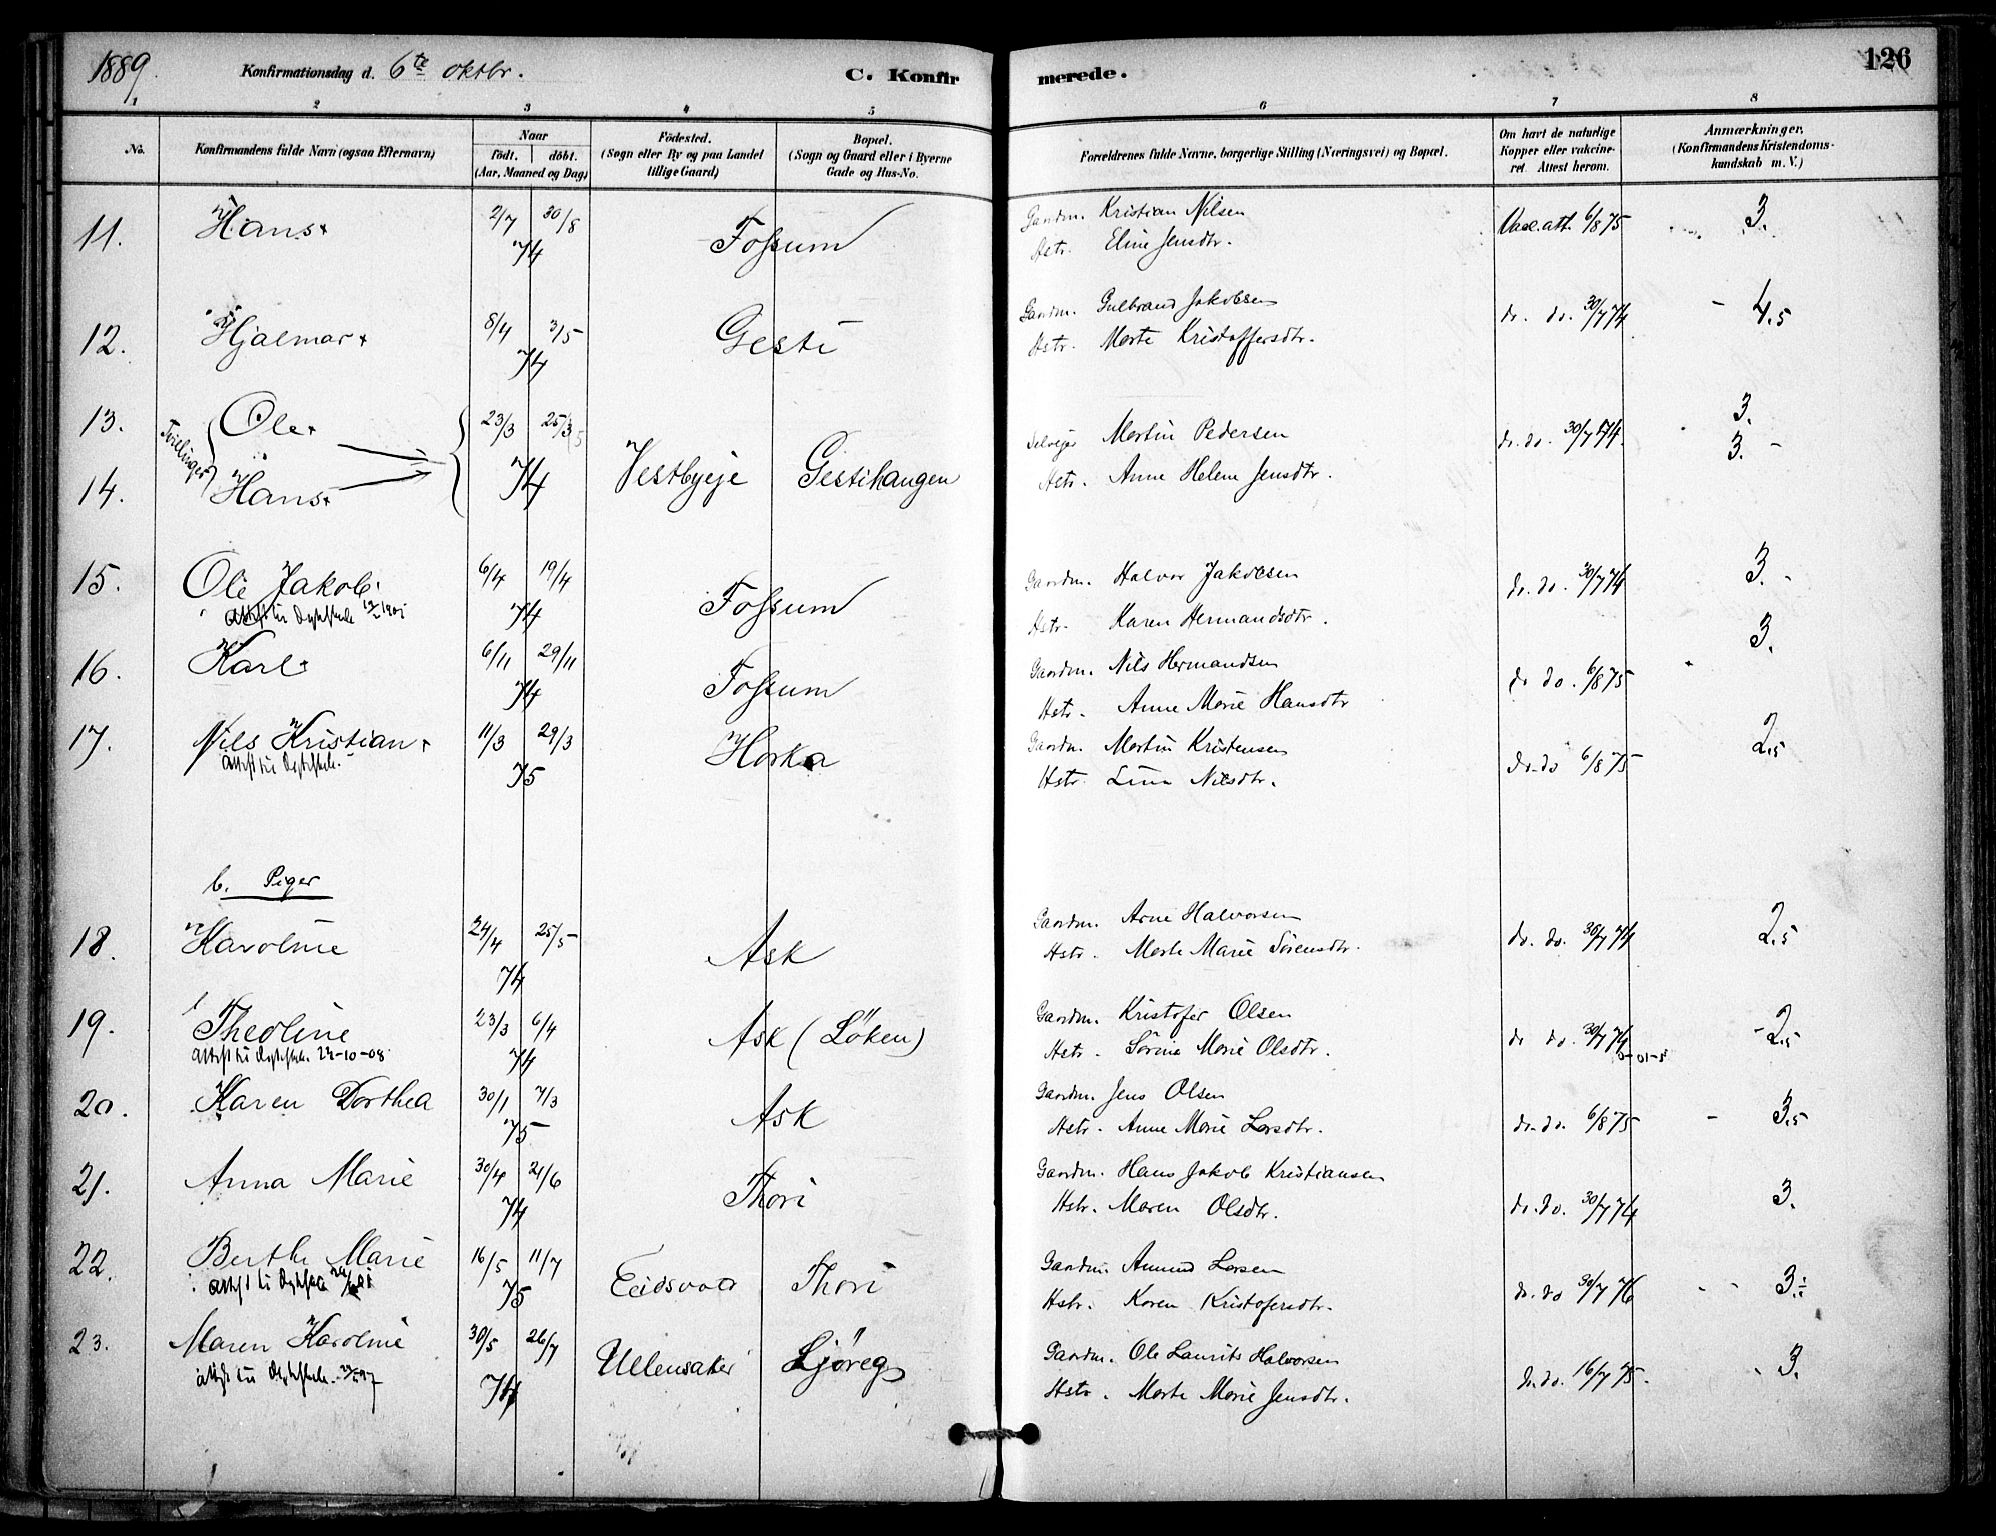 1889. Konfirmationsdag d. 6te oktbr. C. Konfir merede. 126
1 2 3 4 5 6 7 8
No. Konfirmandens fulde Navn (ogsaa Efternavn) Naar födt. döbt. (Aar, Maaned og Dag) Födested. (Sogn eller By og paa Landet tillige Gaard) Bopæl. (Sogn og Gaard eller i Byerne Gade og Hus-No. Forældrenes fulde Navne, borgerlige Stilling (Næringsvei) og Bopæl. Om havt de naturlige Kopper eller vakcineret. Attest herom. Anmærkninger. (Konfirmandens Kristendomskundskab m. V.)
11. Hans 2/7 30/8 74 Fossum Gaardm. Kristian Nilsen Vacc. att. 6/8 75 3.
Hstr. Eline Jensdtr.
12. Hjalmar 8/4 3/5 74 Gesti Gaardm. Gulbrand Jakobsen do. do. 30/7 74 4.5
Hstr. Marte Kristoffersdtr.
13. Ole 23/3 25/5 Selveier Martin Pedersen do. do. 30/7 74. 3.
Tvillinger 74 Vestbyeje Gestihaugen 3.
14. Hans Hstr. Anne Helene Jensdtr.
15. Ole Jakob 6/4 19/4 74 Fossum Gaardm. Halvor Jakobsen do. do. 30/7 74 3.
Hstr. Karen Hermandsdtr.
16. Karl 6/11 29/11 74 Fossum Gaardm. Nils Hermandsen do do. 6/8 75 3.
Hstr. Anne Marie Hansdtr
17. Nils Kristian 11/3 29/3 75 Horka Gaardm. Martin Kristensen do. do 6/8 75 2.5
Hstr. Lina Nilsdtr.
b. Piger
18. Karoline 24/4 25/5 74 Ask Gaardm. Arne Halvorsen do. do. 30/7 74 2.5
Hstr. Marte Marie Sörensdtr.
19. Theoline 23/3 6/4 74 Ask (Löken) Gaardm. Kristofer Olsen do do. 30/7 74 2.5
Hstr. Sörine Marie Olsdtr.
20. Karen Dorthea 30/1 7/3 75 Ask Gaardm. Jens Olsen do. do. 6/8 75 3.5
Hstr. Anne Marie Larsdtr.
21. Anna Marie 30/4 21/6 74 Thori Gaardm. Hans Jakob Kristiansen do. do. 30/7 74 3.
Hstr. Maren Olsdtr.
22. Berthe Marie 16/5 11/7 75 Eidsvold Thori Gaardm. Amund Larsen do. do 30/7 76 3
Hstr. Karen Kristofersdtr.
23. Maren Karoline 30/5 26/7 74 Ullensaker Ljöreg Gaardm. Ole Laurits Halvorsen do. do. 16/7 75. 3.
Hstr. Marte Marie Jensdtr.